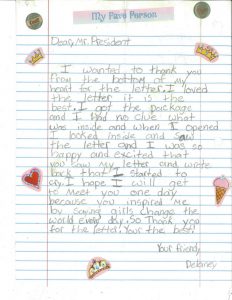 My Fave Person
Dear, Mr. President
I wanted to thank you
from the bottom of my
heart for the letter. I loved
the letter it is the
best. I got the package
and I had no clue what
was inside and when I opened
I looked inside and saw
the letter and I was so
happy and excited that
you saw my letter and wrote
back that I started to
cry. I hope I will get
to meet you one day
because you inspired me
by saying girls change the
world every day. So thank you
for the letter. Your the best!
Your friend,
Delaney